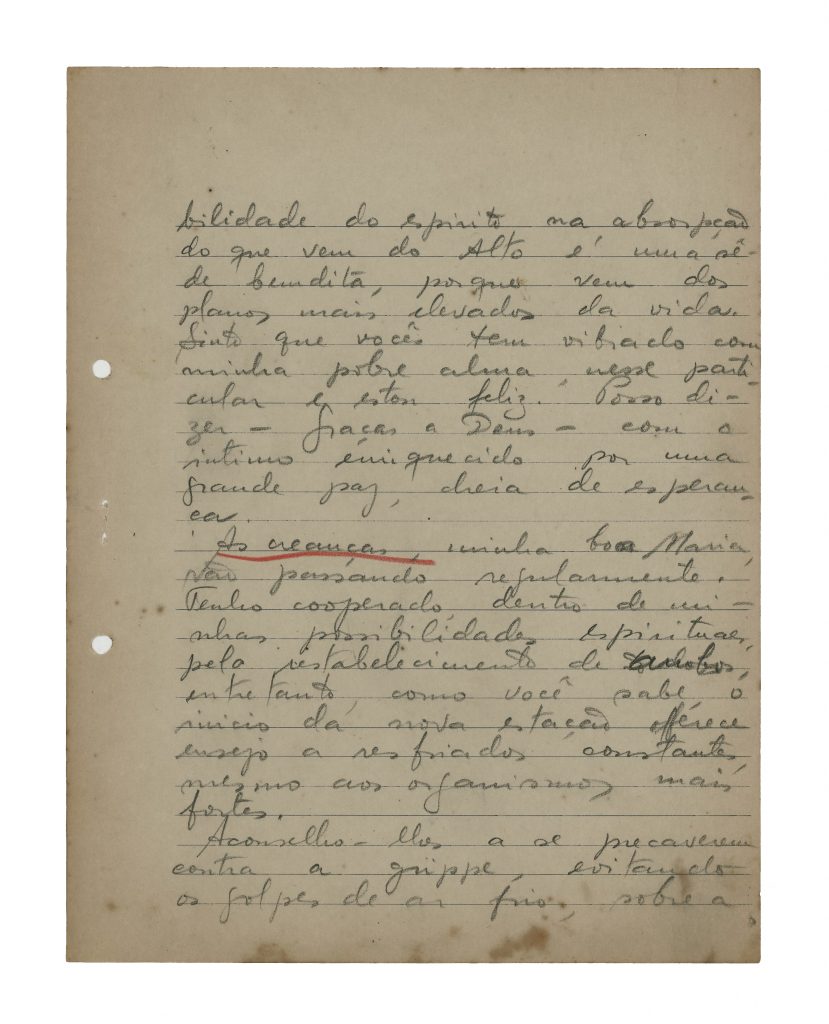 bilidade do espirito na absorpção
do que vem do Alto é uma sê-
de bemdita, porque vem dos
planos mais elevados da vida.
Sinto que vocês tem vibrado com
minha pobre alma, nesse parti-
cular e estou feliz. Posso di-
zer - graças a Deus - com o
intimo enriquecido por uma
grande paz, cheia de esperan-
ça.
As creanças, minha boa Maria,
vão passando regularmente.
Tenho cooperado, dentro de mi-
nhas possibilidades espirituaes,
pelo restabelecimento de ambos,
entretanto, como você sabe, o
inicio da nova estação offerece
ensejo a resfriados constantes,
mesmo aos organismos mais
fortes.
Aconselho-lhes a se precaverem
contra a grippe, evitando
os golpes de ar frio, sobre a